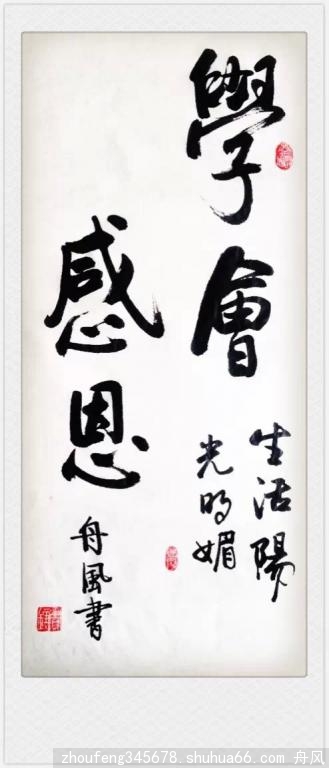 學會
感恩
生活陽
光明媚
舟風書
zhoufeng345678.shuhua66.com 舟风